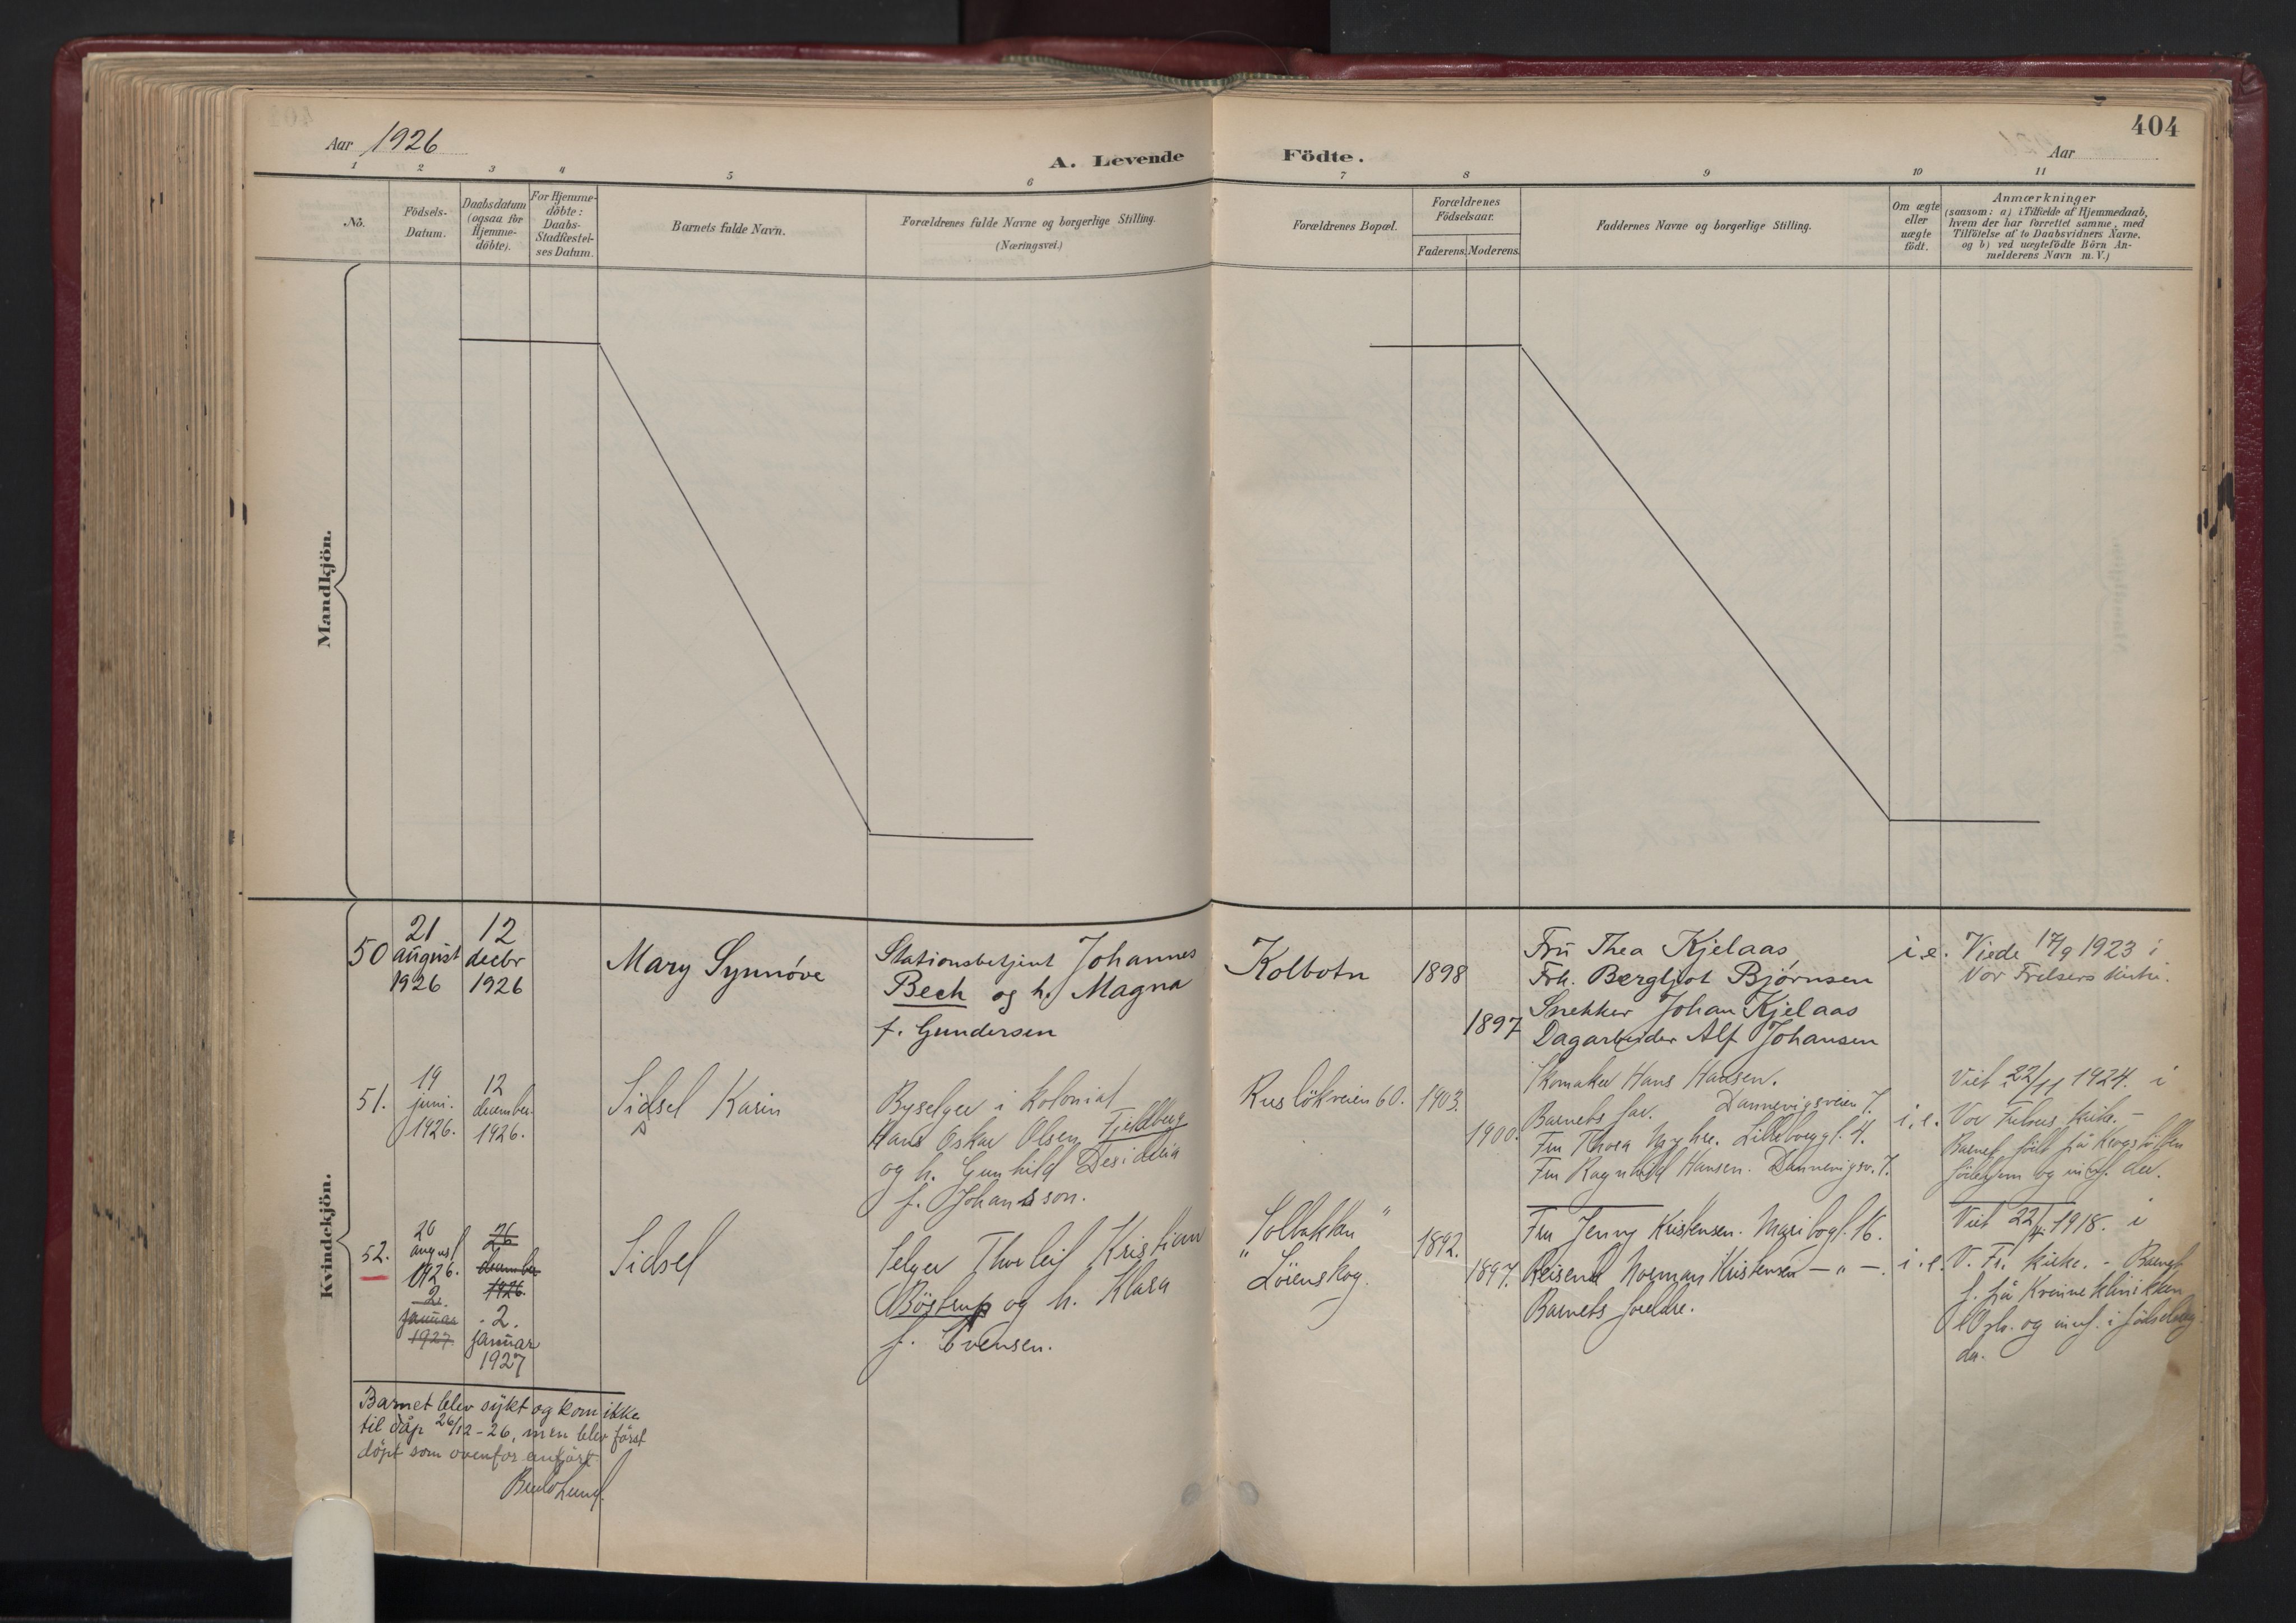 404
Aar 1926
A. Levende Födte.
Aar
1 2 3 4 5 6 7 8 9 10 11
No.
Födsels-
Datum.
Daabsdatum
(ogsaa for
Hjemme-
döbte).
For Hjemme-
döbte:
Daabs-
Stadfæstel-
ses Datum.
Barnets fulde Navn.
Forældrenes fulde Navne og borgerlige Stilling.
(Næringsvei.)
Forældrenes Bopæl.
Forældrenes
Födselsaar.
Faderens. Moderens.
Faddernes Navne og borgerlige Stilling.
Om ægte
eller
uægte
födt.
Anmærkninger
(saasom: a) i Tilfælde af Hjemmedaab,
hvem der har forrettet samme, med
Tilföielse af to Daabsvidners Navne.
og b) ved uægtefödte Börn An-
melderens Navn m. V.)
Mandkjön.
Kvindekjön.
50
21
august
1926
12
decbr
1926
Mary Synnöve
Stationsbetjent Johannes
Bech og h. Magna
f. Gundersen
Kolbotn
1898
1897
Fru Thea Kjelaas
Frk. Bergljot Bjørnsen
Snekker Johan Kjelaas
Dagarbeider Alf Johansen
i.e.
Viede 17/9 1923 i
Vor Frelsers kirke.
51.
19
juni.
1926.
12
december.
1926.
Sidsel Karin
Byselger i kolonial
Hans Oskar Olsen Fjeldberg
og h. Gunhild Desideria
f. Johansson.
Ruslökveien 60.
1903.
1900.
Skomaker Hans Hansen.
Dannevigsveien 7.
Barnets far.
Fru Thora Myhre. Lilleborggt. 4.
Fru Ragnhild Hansen. Dannevigsv. 7.
i.e.
Viet 22/11 1924. i
Vor Frelsers kirke. –
Barnet födt på
födehjem og innf. der.
52.
20
august
1926.
2.
januar
1927.
26
december
1926.
2.
januar
1927
Sidsel
Selger Thorleif Kristian
Böstrup og h. Klara
f. Evensen.
"Solbakken"
Lörenskog.
1892.
1897.
Fru Jenny Kristensen. Maribogt. 16.
Reisende Norman Kristensen – " –.
Barnets foreldre.
i.e.
Viet 1918. i
V. Fr. kirke. – Barnet
f. på Kvinneklinikken
Oslo. og innf. i
der.
Barnet blev sykt og kom ikke
til dåp 26/12 - 26, men blev først
döpt som ovenfor anfört